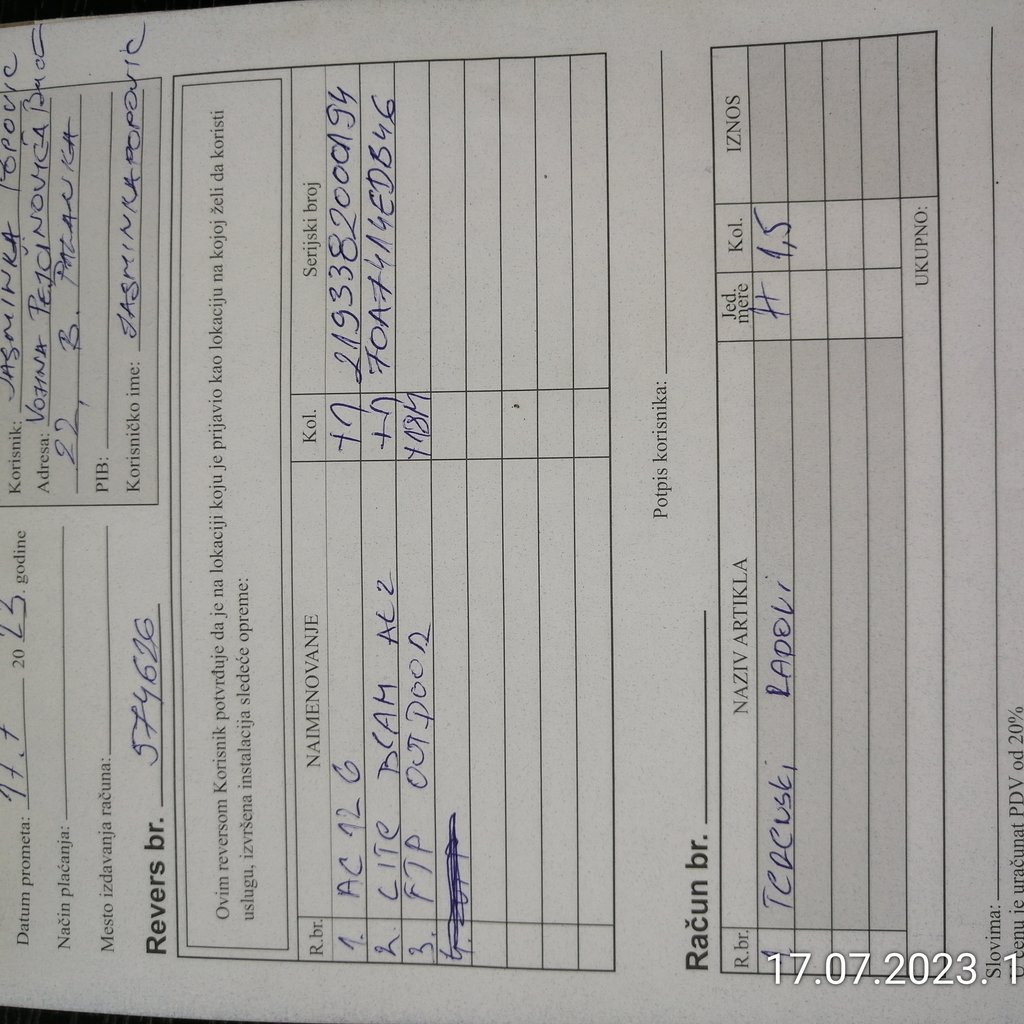 Datum prometa: 17.7 2023. godine
Način plaćanja:
Mesto izdavanja računa:
Korisnik: JASMINKA POPOVIC
Adresa: VOJINA PEJČINOVIĆA
22, B. PALANKA
PIB:
Korisničko ime: JASMINKAPOPOVIC
Revers br. 574626
Ovim reversom Korisnik potvrđuje da je na lokaciji koju je prijavio kao lokaciju na kojoj želi da koristi
uslugu, izvršena instalacija sledeće opreme:
R.br. NAIMENOVANJE Kol. Serijski broj
1. AC 12 G +1 2193382000194
2. LITE BEAM AC 2 +1 70A7414EDB46
3. FTP OUTDOOR +18M
4.
Potpis korisnika:
Račun br.
R.br. NAZIV ARTIKLA Jed. mere Kol. IZNOS
1 TERENSKI RADOVI H 1,5
UKUPNO:
Slovima:
U cenu je uračunat PDV od 20%
17.07.2023. 1